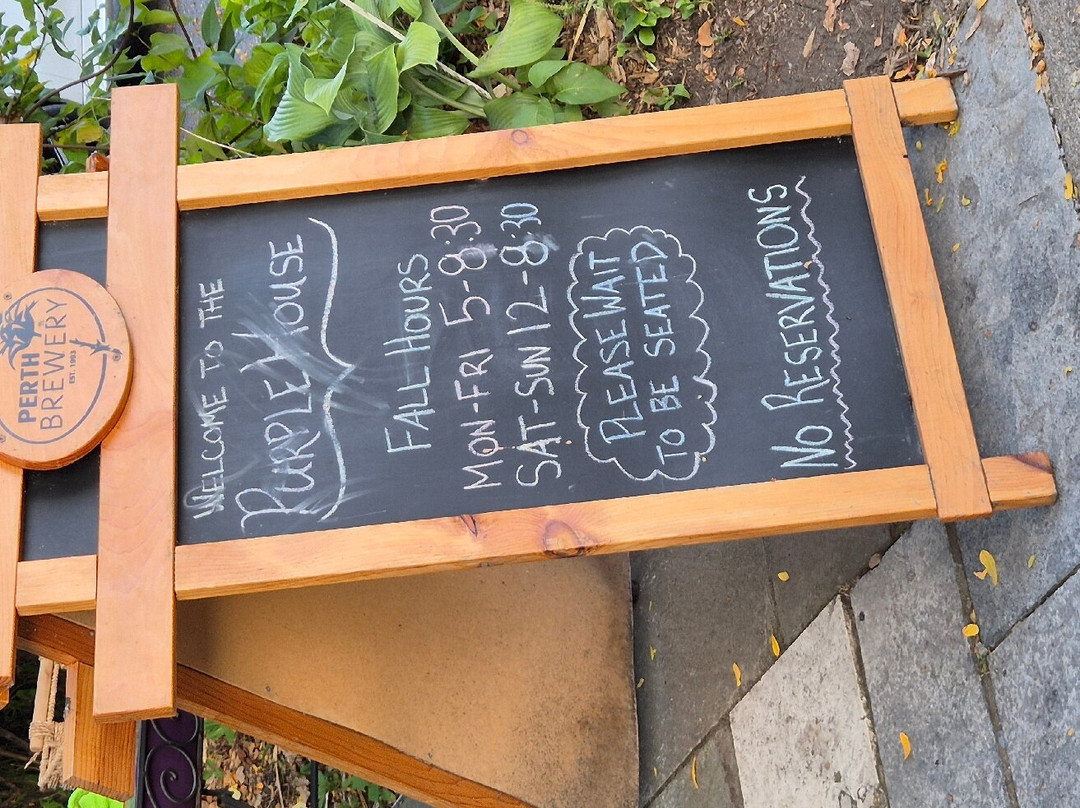 PERTH
BREWERY
EST. 1993
WELCOME TO THE
PURPLE HOUSE
FALL HOURS
MON-FRI 5-8:30
SAT-SUN 12-8:30
PLEASE WAIT
TO BE SEATED
NO RESERVATIONS